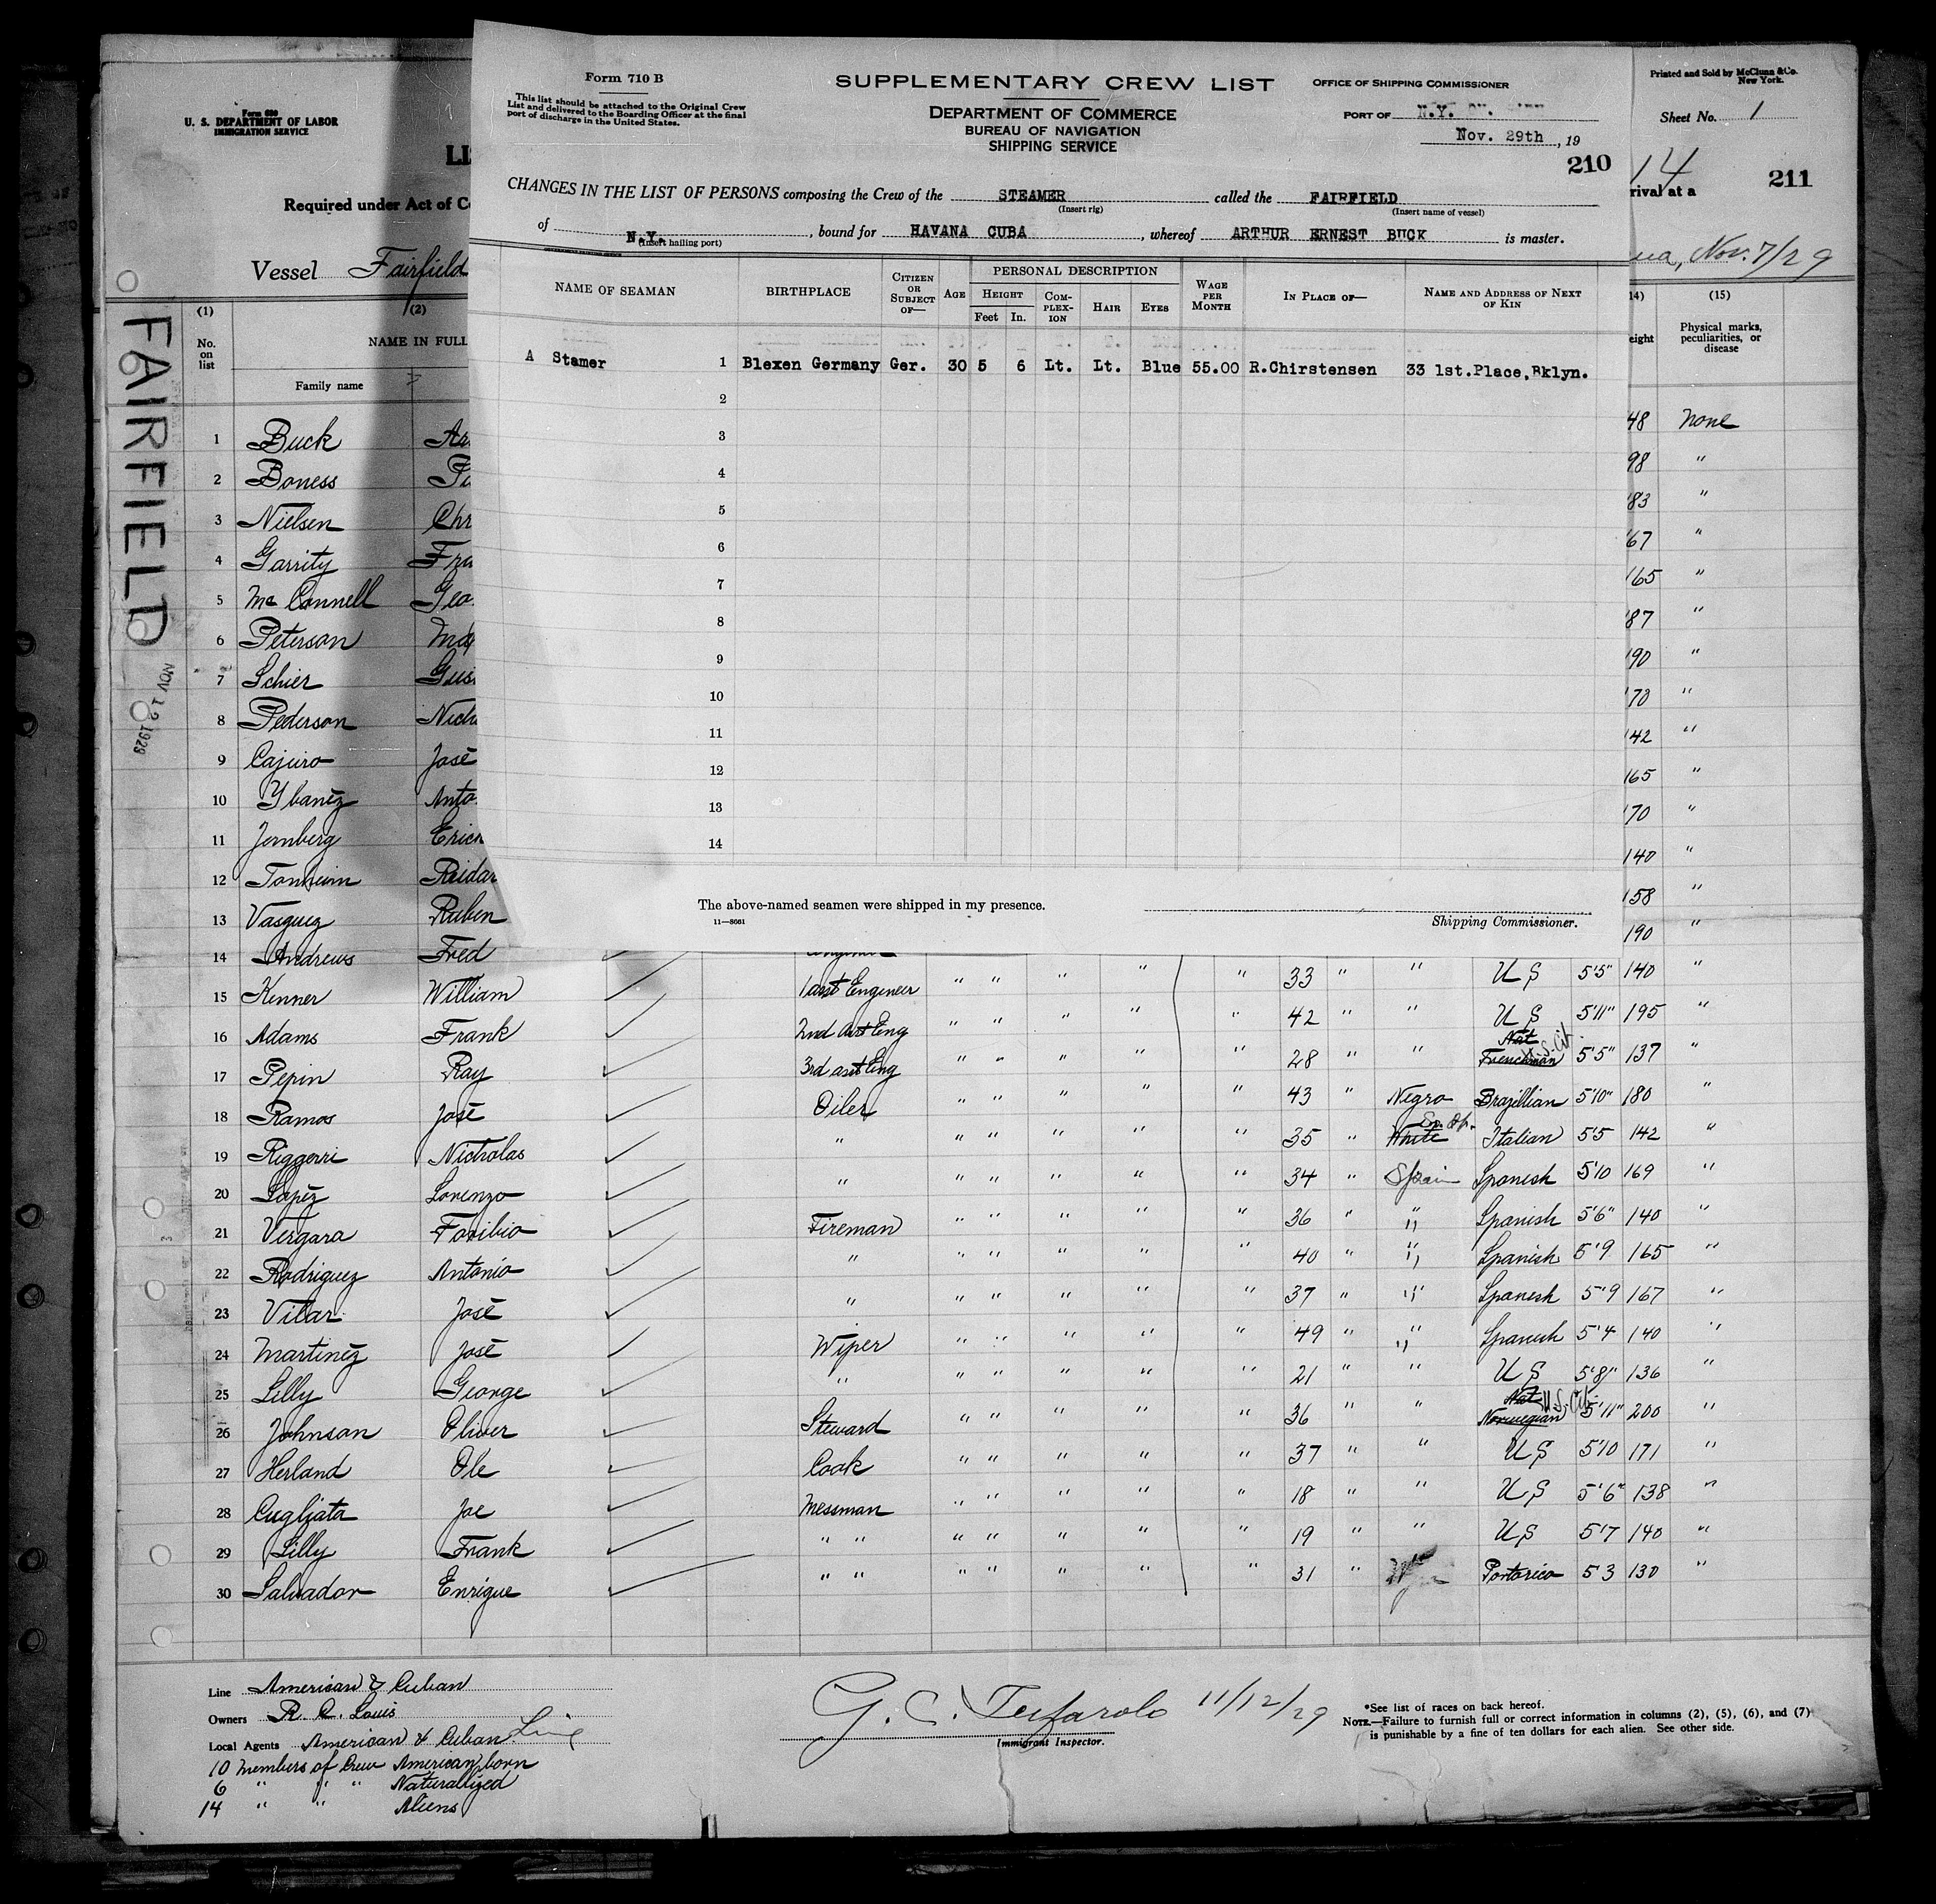 Form 710 B
This list should be attached to the Original Crew
List and delivered to the Boarding Officer at the final
port of discharge in the United States.
SUPPLEMENTARY CREW LIST
DEPARTMENT OF COMMERCE
BUREAU OF NAVIGATION
SHIPPING SERVICE
OFFICE OF SHIPPING COMMISSIONER
PORT OF N.Y.
Nov. 29th , 19
210
CHANGES IN THE LIST OF PERSONS composing the Crew of the STEAMER called the FAIRFIELD
(Insert rig) (Insert name of vessel)
of N.Y. , bound for HAVANA CUBA , whereof ARTHUR ERNEST BUCK is master.
(Insert hailing port)
NAME OF SEAMAN BIRTHPLACE CITIZEN OR SUBJECT OF— AGE PERSONAL DESCRIPTION HEIGHT Feet In. COM-PLEX-ION HAIR EYES WAGE PER MONTH IN PLACE OF— NAME AND ADDRESS OF NEXT OF KIN
A Stamer 1 Blexen Germany Ger. 30 5 6 Lt. Lt. Blue 55.00 R.Chirstensen 33 1st.Place,Bklyn.
2
3
4
5
6
7
8
9
10
11
12
13
14
The above-named seamen were shipped in my presence.
11—8661
Shipping Commissioner.
Printed and Sold by McClunn & Co.
New York.
Sheet No. 1
14
rival at a
211
ua, Nov. 7/29
Form 680
U. S. DEPARTMENT OF LABOR
IMMIGRATION SERVICE
LI
Required under Act of Co
Vessel Fairfield
FAIRFIELD
NOV 12 1929
(1) (2) 14) (15)
No. on list NAME IN FULL eight Physical marks, peculiarities, or disease
Family name
1 Buck Ar 48 none
2 Boness Pa 98 "
3 Nielsen Chr 83 "
4 Garrity Fra 67 "
5 Mc Connell Geo 165 "
6 Peterson Ma 87 "
7 Schier Gus 90 "
8 Pederson Nich 70 "
9 Cajuro José 42 "
10 Ybanez Anto 165 "
11 Jornberg Erich 70 "
12 Tonheim Reidar 140 "
13 Vasquez Ruben 158 "
14 Andrews Fred 190 "
15 Kenner William 1 asst Engineer " " " " " 33 " " U S 5'5" 140 "
16 Adams Frank 2nd asst Eng " " " " " 42 " " U S 5'11" 195 "
17 Pepin Ray 3rd asst Eng " " " " " 28 " " Nat Frenchman U.S. Cit. 5'5" 137 "
18 Ramos José Oiler " " " " " 43 " Negro Brazillian 5'10" 180 "
19 Riggerri Nicholas " " " " " " 35 " White Italian 5'5 142 "
20 Lopez Lorenzo " " " " " " 34 " Spain Spanish 5'10 169 "
21 Vergara Toribio Fireman " " " " " 36 " " Spanish 5'6" 140 "
22 Rodriguez Antonio " " " " " " 40 " " Spanish 5'9 165 "
23 Vilar José " " " " " " 37 " " Spanish 5'9 167 "
24 Martinez José Wiper " " " " " 49 " " Spanish 5'4 140 "
25 Lilly George " " " " " " 21 " " U S 5'8" 136 "
26 Johnson Oliver Steward " " " " " 36 " " Nat Norwegian U.S. Cit. 5'11" 200 "
27 Herland Ole Cook " " " " " 37 " " U S 5'10 171 "
28 Cugliata Joe Messman " " " " " 18 " " U S 5'6" 138 "
29 Lilly Frank " " " " " " " 19 " " U S 5'7 140 "
30 Salvador Enrique " " " " " " " 31 " Portorico 5 3 130 "
Line American & Cuban
Owners R. C. Louis
Local Agents American & Cuban Line
10 members of Crew American born
6 " " " Naturalized
14 " " Aliens
11/12/29
Immigrant Inspector.
*See list of races on back hereof.
NOTE.—Failure to furnish full or correct information in columns (2), (5), (6), and (7)
is punishable by a fine of ten dollars for each alien. See other side.